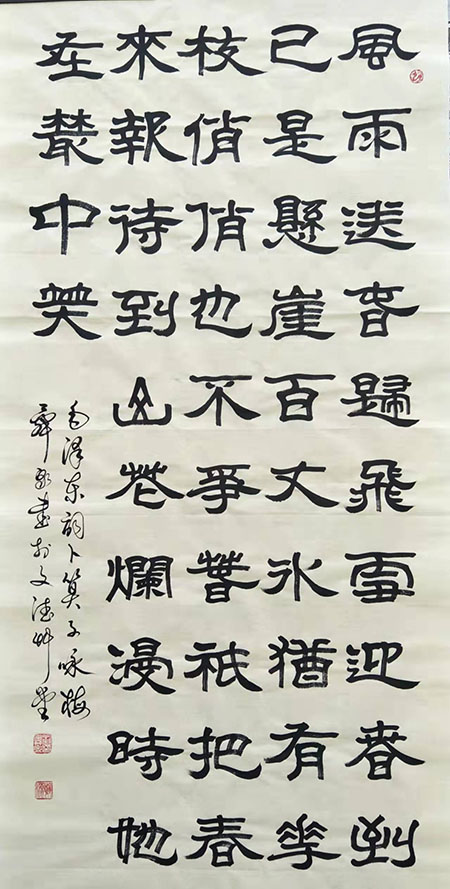 風雨送春歸飛雪迎春到
已是懸崖百丈冰猶有花
枝俏俏也不爭春祇把春
來報待到山花爛漫時她
在叢中笑
毛澤东詞卜算子咏梅
書於文德艸堂